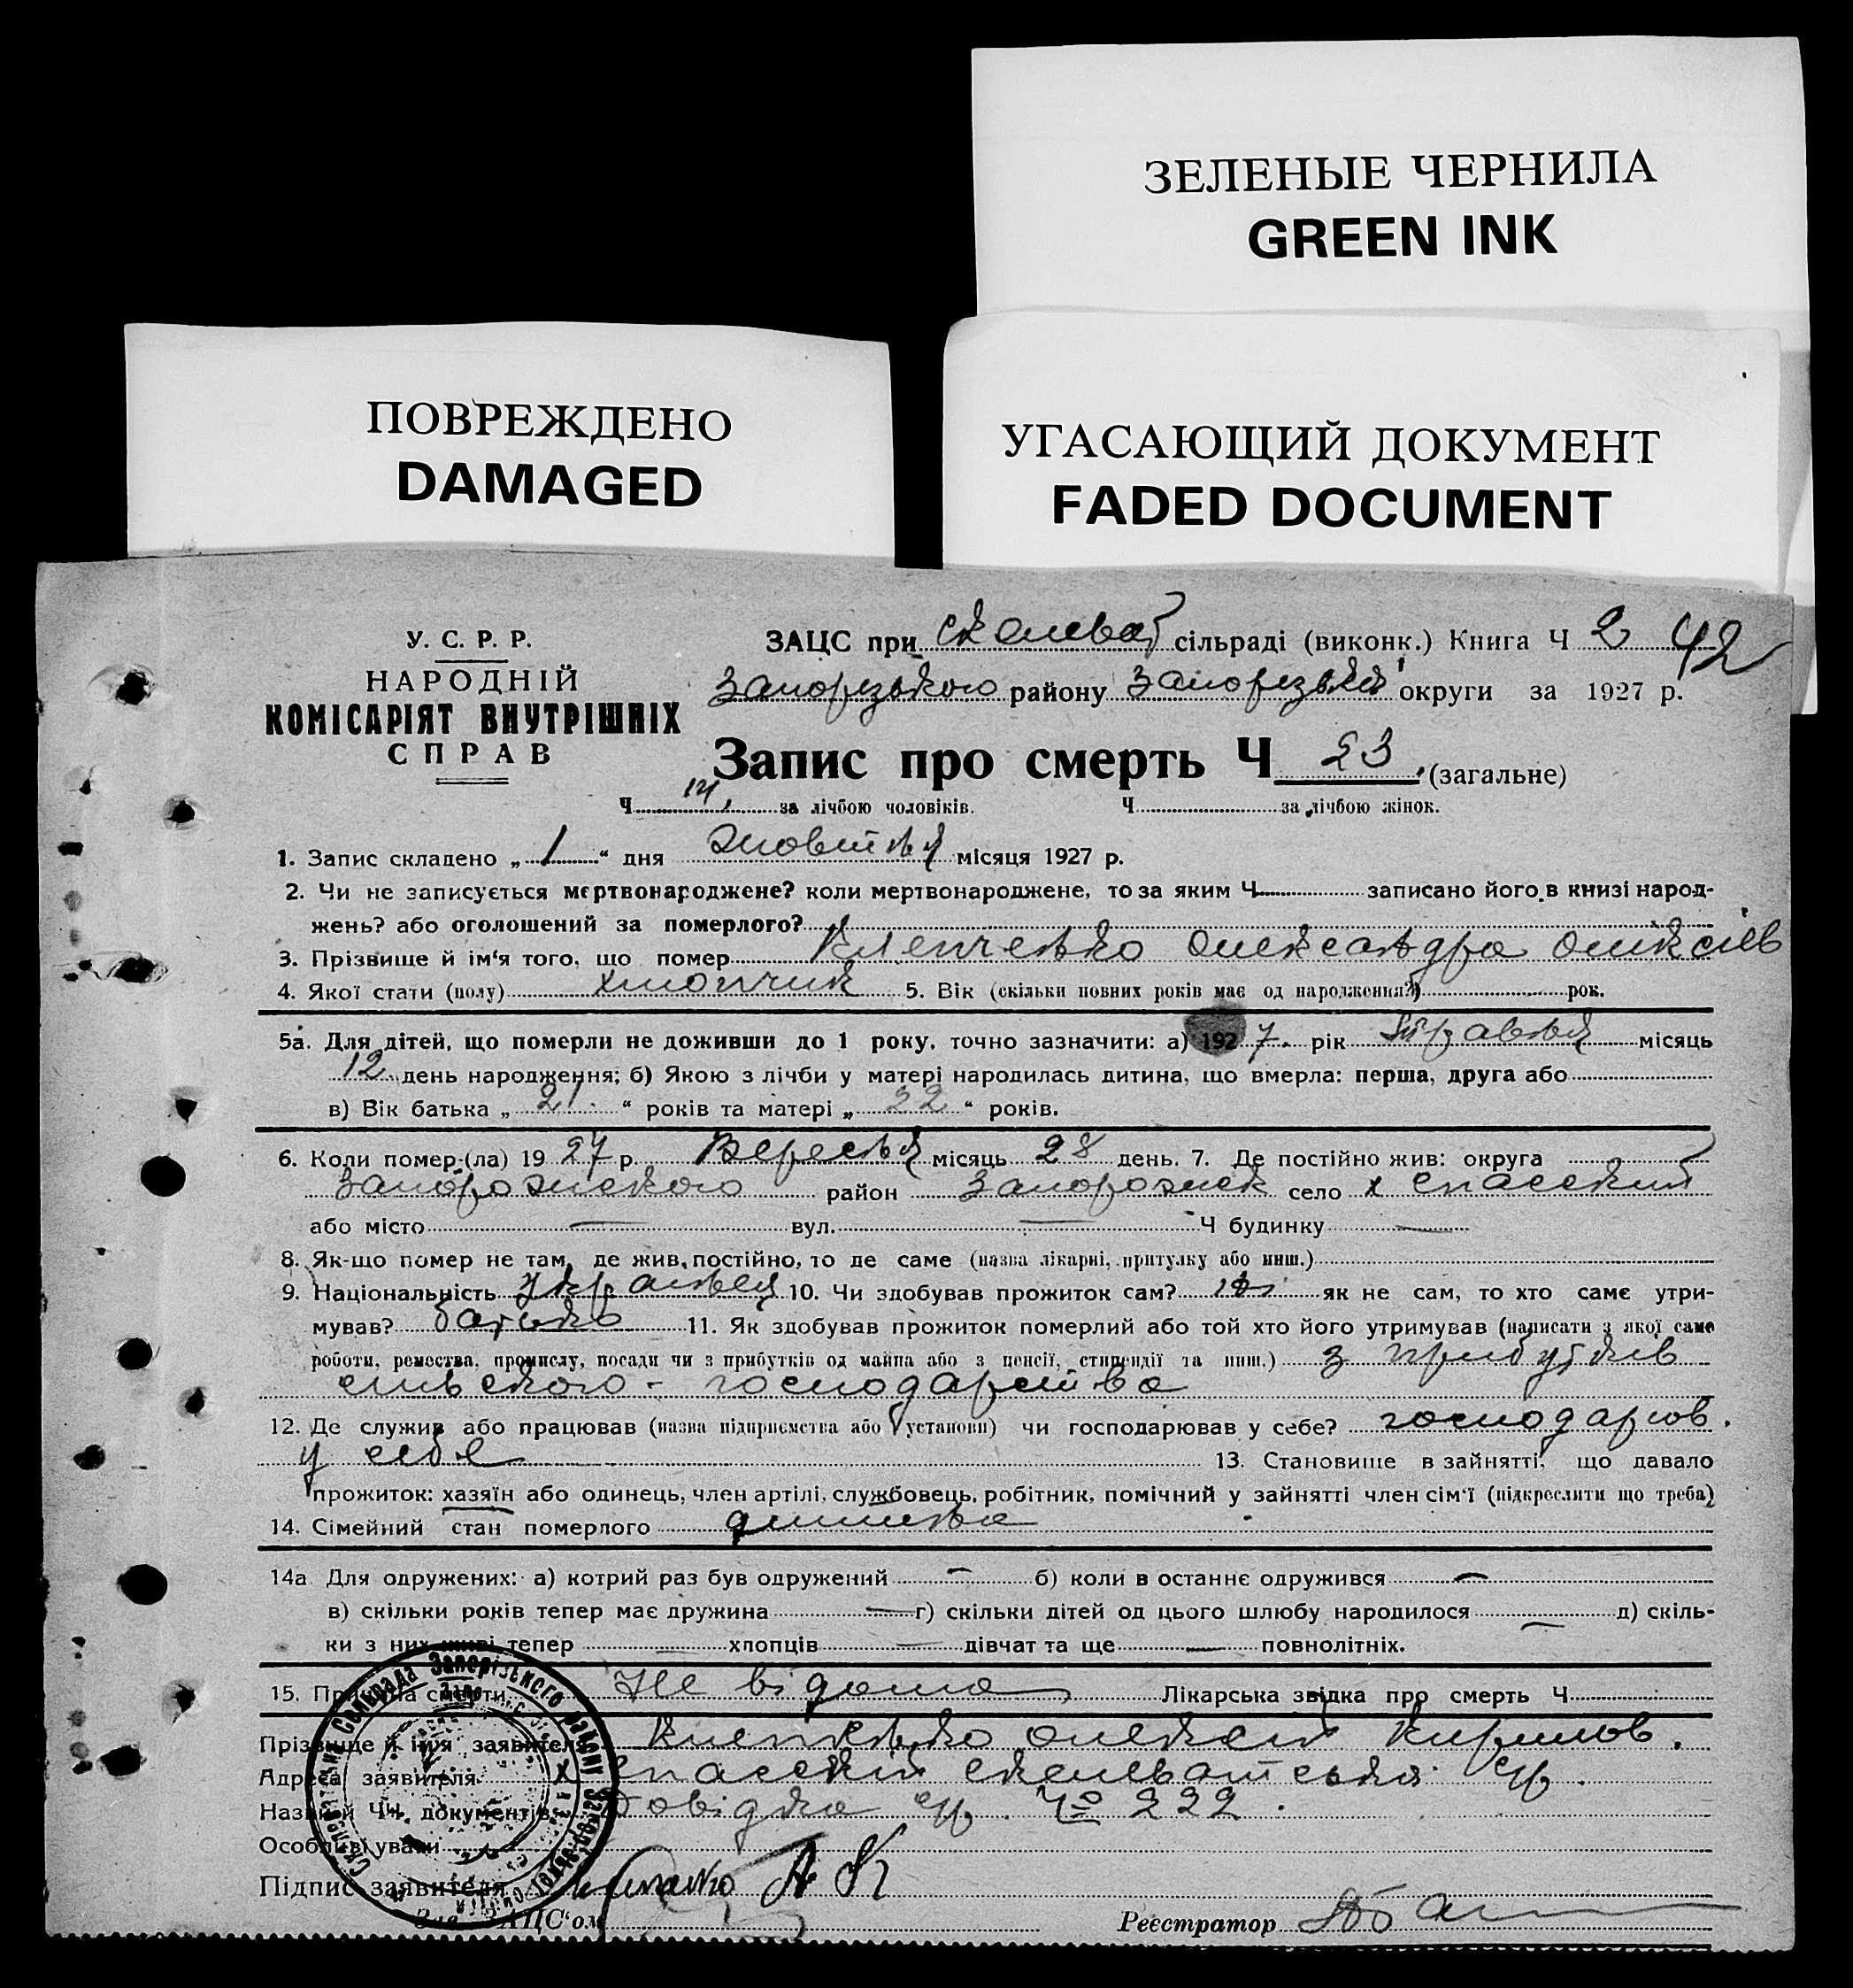 ЗЕЛЕНЫЕ ЧЕРНИЛА
GREEN INK
ПОВРЕЖДЕНО
DAMAGED
УГАСАЮЩИЙ ДОКУМЕНТ
FADED DOCUMENT
У. С. Р. Р.
НАРОДНІЙ
КОМІСАРІЯТ ВНУТРІШНІХ
СПРАВ
ЗАЦС при сільраді (виконк.) Книга Ч 2 42
Запорізького району Запорізької округи за 1927 р.
Запис про смерть Ч 23 (загальне)
Ч 14 за лічбою чоловіків. Ч за лічбою жінок.
1. Запис складено „ 1 “ дня Жовтня місяця 1927 р.
2. Чи не записується мертвонароджене? коли мертвонароджене, то за яким Ч записано його в книзі народ-
жень? або оголошений за померлого?
3. Прізвище й ім'я того, що помер Клепченко Олександра Олексієв
4. Якої стати (полу) хлопчик 5. Вік (скільки повних років має од народження?) рок.
5а. Для дітей, що померли не доживши до 1 року, точно зазначити: а) 1927. рік Травня місяць
12 день народження; б) Якою з лічби у матері народилась дитина, що вмерла: перша, друга або
в) Вік батька „ 21. “ років та матері „ 22 “ років.
6. Коли помер (ла) 1927 р. Вересня місяць 28 день. 7. Де постійно жив: округа
Запорожского район Запорожск село х Спасский
або місто — вул. — Ч будинку —
8. Як-що помер не там, де жив, постійно, то де саме (назва лікарні, притулку або инш.)
9. Національність українец 10. Чи здобував прожиток сам? ні як не сам, то хто саме утри-
мував? батько 11. Як здобував прожиток померлий або той хто його утримував (написати з якої саме
роботи, ремества, промислу, посади чи з прибутків од майна або з пенсії, стипендії та инш.) з прибутків
сильского - господарства
12. Де служив або працював (назва підприємства або установи) чи господарював у себе? господарюв.
у себе 13. Становище в зайнятті, що давало
прожиток: хазяїн або одинець, член артілі, службовець, робітник, помічний у зайнятті член сім'ї (підкреслити що треба)
14. Сімейний стан померлого дитина
14а Для одружених: а) котрий раз був одружений — б) коли в останнє одружився —
в) скільки років тепер має дружина — г) скільки дітей од цього шлюбу народилося — д) скіль-
ки з них живі тепер — хлопців — дівчат та ще — повнолітніх.
15. Причина смерти Не відома Лікарська звідка про смерть Ч
Прізвище й ім'я заявителя Клепченко Олексій Кирилов.
Адреса заявителя Х Спасский
Назва й Ч.Ч. документів Довідка № 222.
Особливі уваги
Підпис заявителя А К
Зав. ЗАЦС'ом
Реєстратор
Сільрада Запорізького району Запорізької округи